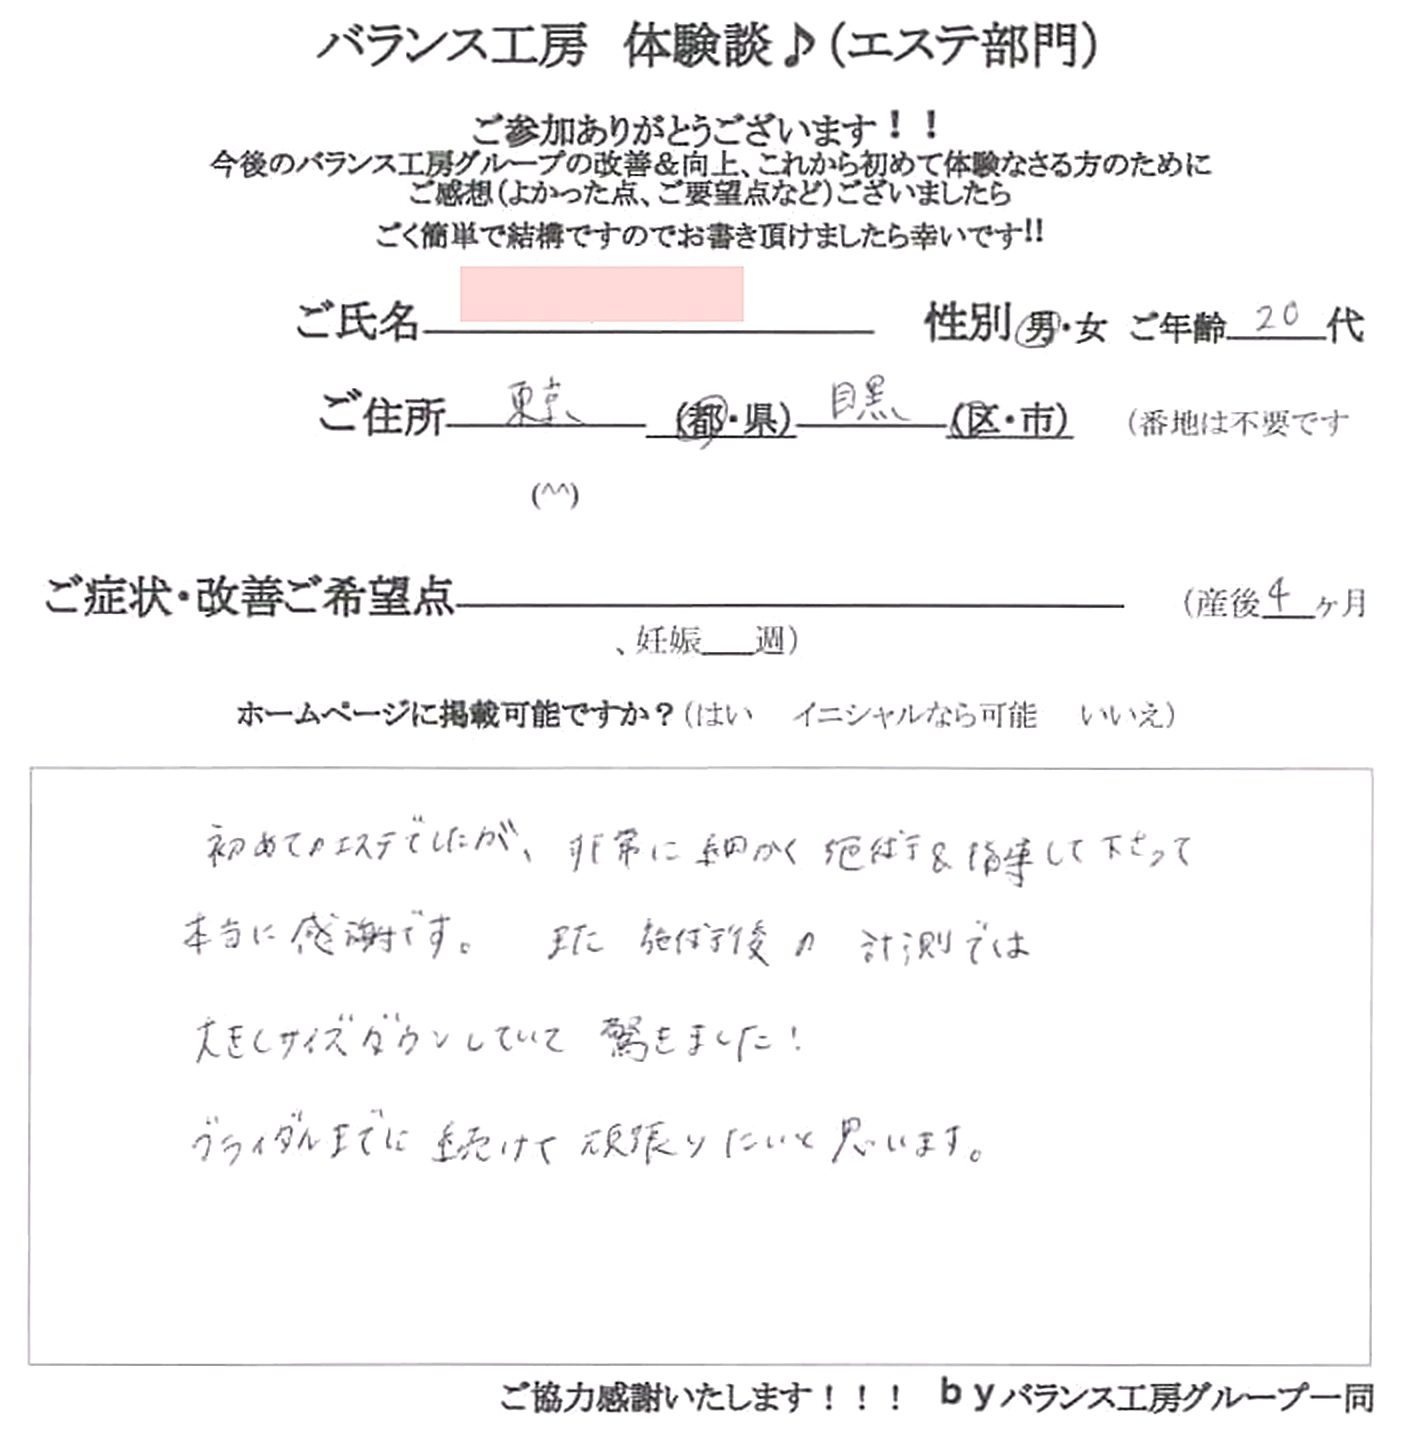 バランス工房 体験談♪(エステ部門)
ご参加ありがとうございます！！
今後のバランス工房グループの改善＆向上、これから初めて体験なさる方のために
ご感想(よかった点、ご要望点など)ございましたら
ごく簡単で結構ですのでお書き頂けましたら幸いです!!
ご氏名 性別 男・女 ご年齢 20 代
ご住所 東京 (都・県) 目黒 (区・市) (番地は不要です
(^^)
ご症状・改善ご希望点 (産後 4 ヶ月
、妊娠 週)
ホームページに掲載可能ですか？(はい イニシャルなら可能 いいえ)
初めてのエステでしたが、非常に細かく施術＆指導して下さって
本当に感謝です。 また 施術後の 計測では
大きくサイズダウンしていて 驚きました！
ブライダルまでに 続けて 頑張りたいと 思います。
ご協力感謝いたします！！！ ｂｙバランス工房グループ一同